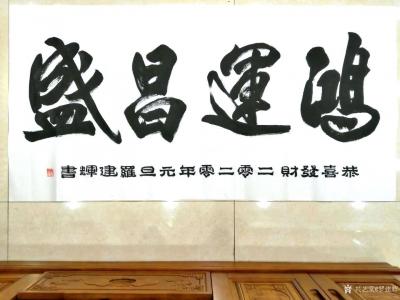 鴻運昌盛
恭喜發財二零二零年元旦羅建輝書